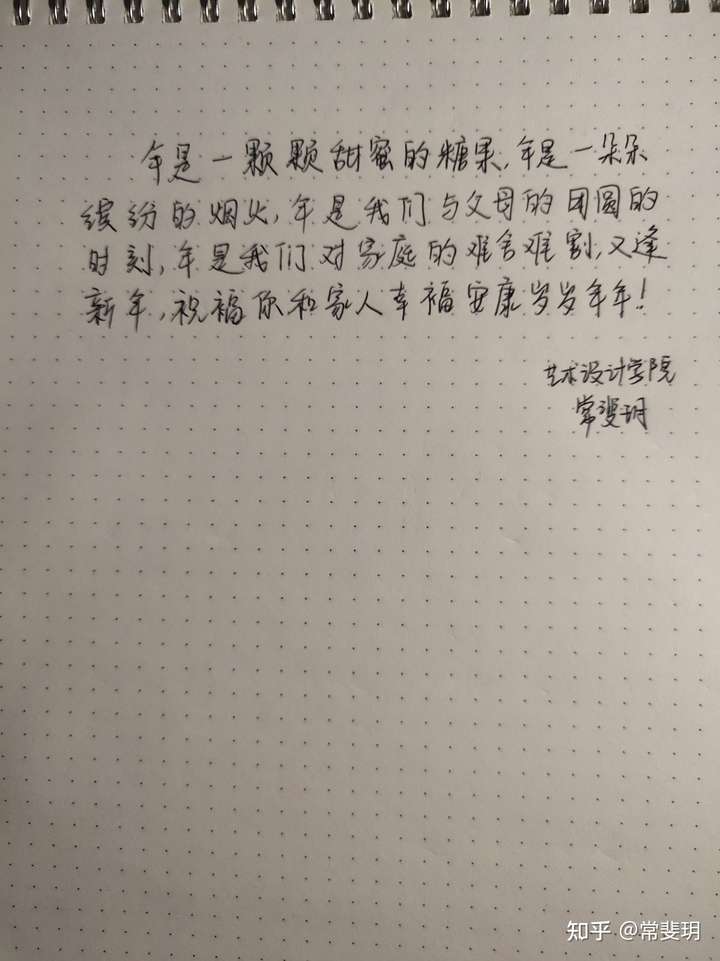 年是一颗颗甜蜜的糖果,年是一朵朵
缤纷的烟火,年是我们与父母的团圆的
时刻,年是我们对家庭的难舍难割,又逢
新年,祝福你和家人幸福安康岁岁年年!
艺术设计学院
常斐玥
知乎 @常斐玥